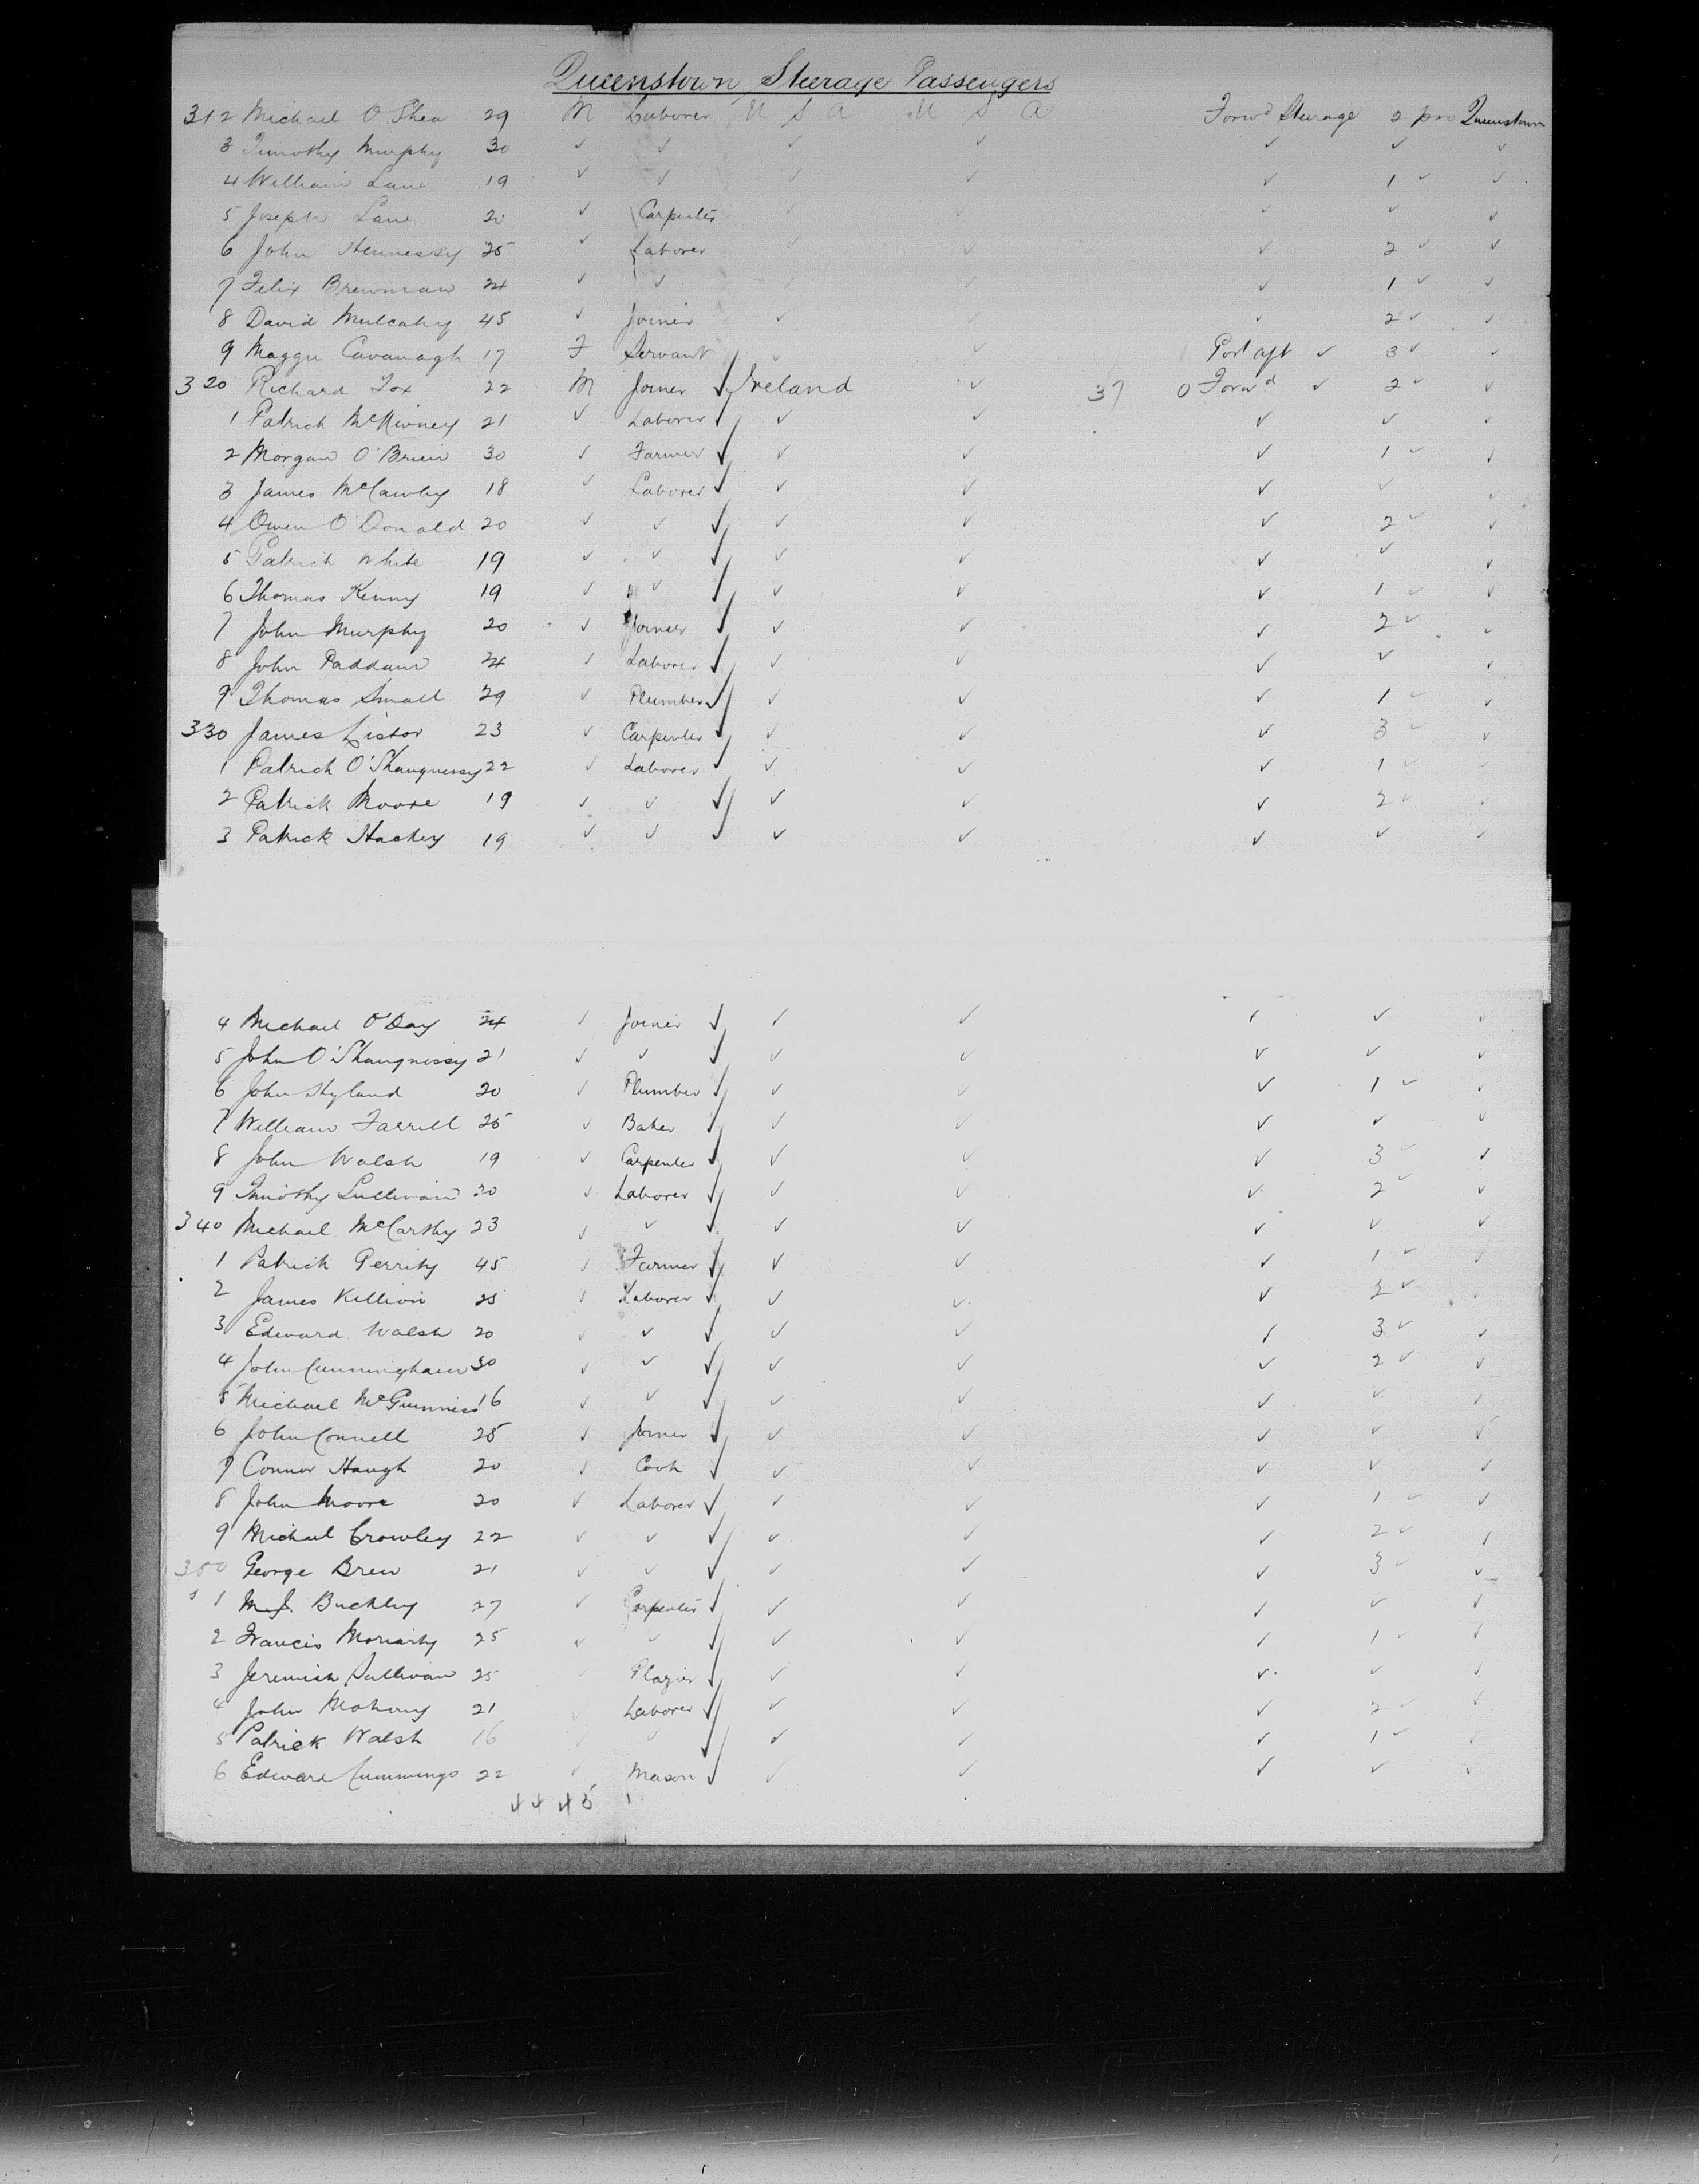 Queenstown Steerage Passengers
312 Michael O'Shea 29 M Laborer U S A U S A Forwd Steerage 2 pro Queenstown
3 Timothy Murphy 30 ✓ ✓ ✓ ✓ ✓ ✓ ✓
4 William Lane 19 ✓ ✓ ✓ ✓ ✓ 1 ✓ ✓
5 Joseph Lane 20 ✓ Carpenter ✓ ✓ ✓ ✓ ✓
6 John Hennessy 25 ✓ Laborer ✓ ✓ ✓ 2 ✓ ✓
7 Felix Brewman 24 ✓ ✓ ✓ ✓ ✓ 1 ✓ ✓
8 David Mulcahy 45 ✓ Joiner ✓ ✓ ✓ 2 ✓ ✓
9 Maggie Cavanagh 17 F Servant ✓ ✓ Port aft ✓ 3 ✓ ✓
320 Richard Fox 22 M Joiner ✓ Ireland ✓ 37 0 Forwd ✓ 2 ✓ ✓
1 Patrick McKinney 21 ✓ Laborer ✓ ✓ ✓ ✓ ✓ ✓
2 Morgan O'Brien 30 ✓ Farmer ✓ ✓ ✓ ✓ 1 ✓ ✓
3 James McCawley 18 ✓ Laborer ✓ ✓ ✓ ✓ ✓ ✓
4 Owen O'Donald 20 ✓ ✓ ✓ ✓ ✓ ✓ 2 ✓ ✓
5 Patrick White 19 ✓ ✓ ✓ ✓ ✓ ✓ ✓ ✓
6 Thomas Kenny 19 ✓ ✓ ✓ ✓ ✓ ✓ 1 ✓ ✓
7 John Murphy 20 ✓ Joiner ✓ ✓ ✓ ✓ 2 ✓ ✓
8 John Paddam 24 ✓ Laborer ✓ ✓ ✓ ✓ ✓ ✓
9 Thomas Small 29 ✓ Plumber ✓ ✓ ✓ ✓ 1 ✓ ✓
330 James Liston 23 ✓ Carpenter ✓ ✓ ✓ ✓ 3 ✓ ✓
1 Patrick O'Shaugnessy 22 ✓ Laborer ✓ ✓ ✓ ✓ 1 ✓ ✓
2 Patrick Moore 19 ✓ ✓ ✓ ✓ ✓ ✓ 2 ✓ ✓
3 Patrick Hackey 19 ✓ ✓ ✓ ✓ ✓ ✓ ✓ ✓
4 Michael O'Day 24 ✓ Joiner ✓ ✓ ✓ ✓ ✓ ✓
5 John O'Shaugnessy 21 ✓ ✓ ✓ ✓ ✓ ✓ ✓ ✓
6 John Hyland 20 ✓ Plumber ✓ ✓ ✓ ✓ 1 ✓ ✓
7 William Farrell 25 ✓ Baker ✓ ✓ ✓ ✓ ✓ ✓
8 John Walsh 19 ✓ Carpenter ✓ ✓ ✓ ✓ 3 ✓ ✓
9 Timothy Sullivan 20 ✓ Laborer ✓ ✓ ✓ ✓ 2 ✓ ✓
340 Michael McCarthy 23 ✓ ✓ ✓ ✓ ✓ ✓ ✓ ✓
1 Patrick Gerrity 45 ✓ Farmer ✓ ✓ ✓ ✓ 1 ✓ ✓
2 James Killion 25 ✓ Laborer ✓ ✓ ✓ ✓ 2 ✓ ✓
3 Edward Walsh 20 ✓ ✓ ✓ ✓ ✓ ✓ 3 ✓ ✓
4 John Cunningham 30 ✓ ✓ ✓ ✓ ✓ ✓ 2 ✓ ✓
5 Michael McGuinness 16 ✓ ✓ ✓ ✓ ✓ ✓ ✓ ✓
6 John Connell 25 ✓ Joiner ✓ ✓ ✓ ✓ ✓ ✓
7 Connor Haugh 20 ✓ Cook ✓ ✓ ✓ ✓ ✓ ✓
8 John Moore 20 ✓ Laborer ✓ ✓ ✓ ✓ 1 ✓ ✓
9 Michael Crowley 22 ✓ ✓ ✓ ✓ ✓ ✓ 2 ✓ ✓
350 George Brew 21 ✓ ✓ ✓ ✓ ✓ ✓ 3 ✓ ✓
1 M.J. Buckley 27 ✓ Carpenter ✓ ✓ ✓ ✓ ✓ ✓
2 Francis Moriarty 25 ✓ ✓ ✓ ✓ ✓ ✓ 1 ✓ ✓
3 Jeremiah Sullivan 25 ✓ ✓ ✓ ✓ ✓ ✓ ✓
4 John Mahony 21 ✓ Laborer ✓ ✓ ✓ ✓ 2 ✓ ✓
5 Patrick Walsh 16 ✓ ✓ ✓ ✓ ✓ ✓ 1 ✓ ✓
6 Edward Cummings 22 ✓ Mason ✓ ✓ ✓ ✓ ✓ ✓